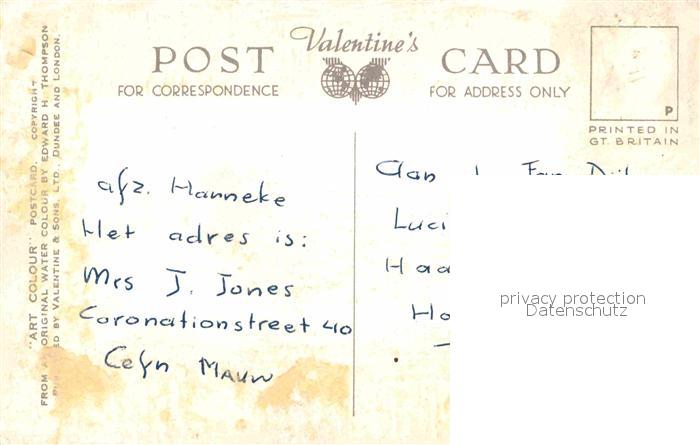 Valentine's
POST CARD
FOR CORRESPONDENCE
FOR ADDRESS ONLY
P
PRINTED IN
GT. BRITAIN
"ART COLOUR" POSTCARD. COPYRIGHT
FROM ORIGINAL WATER COLOUR BY EDWARD H. THOMPSON
ED BY VALENTINE & SONS, LTD., DUNDEE AND LONDON.
afz. Hanneke
Het adres is:
Mrs J. Jones
Coronationstreet 40
Cefn Mawr
Aan
Luci
Haa
Ho
privacy protection
Datenschutz